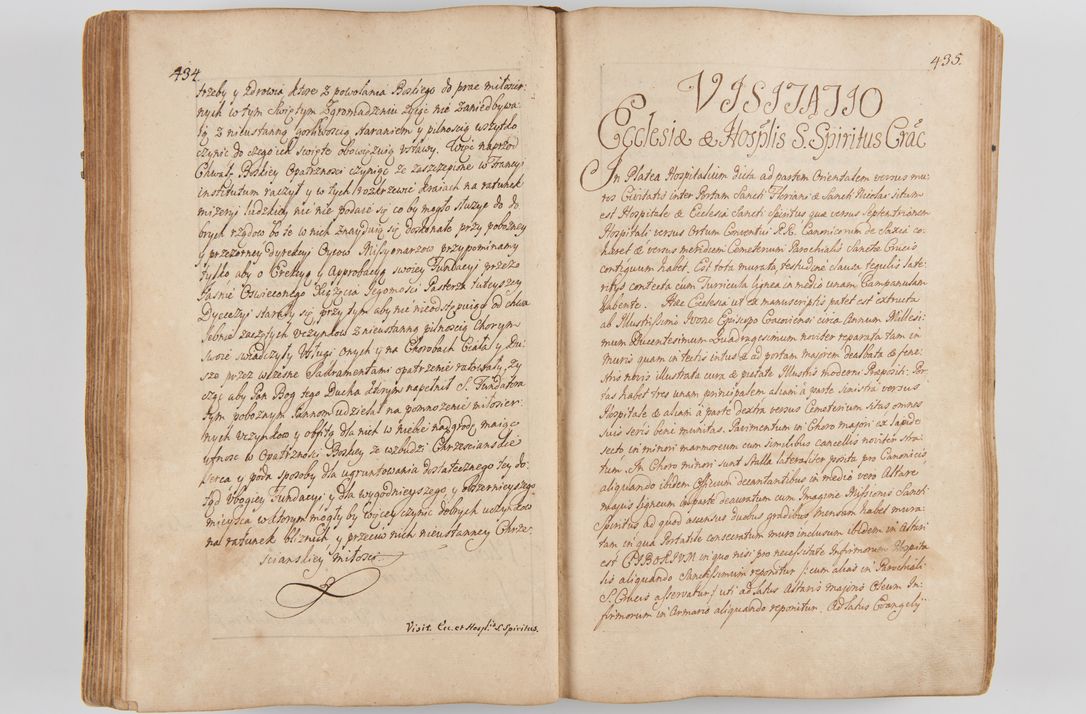 434.
trzeby y zdrowia ktore z powołania Boskiego do prac miłosier:
nych w tym Swiętym Zgromadzeniu zyiąc nie zaniedbywa:
ią z nieustanną gorliwoscią staraniem y pilnoscią wszytko
czynić do czego ich swięte obowięzuią Ustawy. Więc naprzod
Chwałę Boskiey Opatrznosci czyniąc ze zaszczepione w Francyi
institutum raczył y w tych rozkrzewić kraiach na ratunek
mizeryi ludzkiey nic nie podaie się co by mogło służyć do do
brych rządow bo te w nich znayduią się doskonałe przy pobozney
y przezorney dyrekcyi Oycow Missyonarzow przypominamy
tylko aby o Erekcyą y Approbacyą swoiey Fundacyi przezo
Jasnie Oswieconego Xiążęcia Jegomosci Pasterza tuteyszey
Dyecezyi starały się przy tym aby nie nieodstępuiąc od chwa
lebnie zaczętych uczynkow z nieustanną pilnoscią Chorym
swoie swiadczyły Usługi onych y na Chorobach Ciała y Du:
szo przez wczesne Sakramentami opatrzenie ratowały, Zy
cząc aby Pan Bog tego Ducha ktorym napełnił S. Fundatora
tym poboznym Pannom udzielał na pomnożenie miłosier:
nych uczynkow y obfitą dla nich w niebie nagrodę maiąc
ufnosc w Opatrznosci Boskiey ze wzbudzi Chrzescianskie
serca y poda sposoby dla ugruntowania dostatecznego tey do:
tąd ubogiey Fundacyi y dla wygodnieyszego y obszernieyszego
mieysca w ktorym mogły by więcey czynić dobrych uczynkow
na ratunek bliznich y przeciw nich nieustanney Chrze:
scianskiey miłosci.
Visit. Ecc. et Hospl:is S. Spiritus.
435.
VISITATIO
Ecclesiæ & Hospitlis S. Spiritus Crac
In Platea Hospitalium dicta ad partem Orientalem versus mu:
ros Civitatis inter Portam Sancti Floriani & Sancti Nicolai situm
est Hospitale & Ecclesia Sancti Spiritus quæ versus Septentrionem
Hospitali versus Ortum Conventui R.R. Canonicorum de Saxia co:
hæret & versus meridiem Cemeterium Parochialis Sanctæ Crucis
contiguum habet. Est tota murata, testudine clausa tegulis late:
ritys contecta cum Turricula lignea in medio unam Campanulam
habente. Hæc Ecclesia ut ex manuscriptis patet est extructa
ab Illustrissimo Ivone Episcopo Cracoviensi circa Annum Millesi:
mum Ducentesimum Quadragesimum noviter reparata tam in
muris quam in tectis intus & ad portam majorem dealbata & fene:
stris novis illustrata cura & pietate Illustris moderni Præpositi: Por:
tas habet tres unam principalem aliam à parte sinistra versus
Hospitale & aliam à parte dextra versus Cemeterium sitas omnes
suis seris bene munitas. Pavimentum in Choro majori ex lapide
secto, in minori marmoreum cum similibus cancellis noviter stra:
tum. In Choro minori sunt Stalla lateraliter posita pro Canonicis
aliquando ibidem Officium decantantibus in medio vero Altare
majus ligneum in parte deauratum cum Imagine Missionis Sancti
Spiritus ad quod ascensus duobus gradibus, mensam habet mura:
tam in qua Portatile consecratum muro inclusum ibidem in Altari
est CIBORIUM in quo nisi pro necessitate Infirmorum Hospita
lis aliquando Sanctissimum reponitur /: cum alias in Parochiali
S. Crucis asservatur:/ uti ad latus Altaris majoris Oleum In:
firmorum in Armario aliquando reponitur. Ad latus Evangelÿ